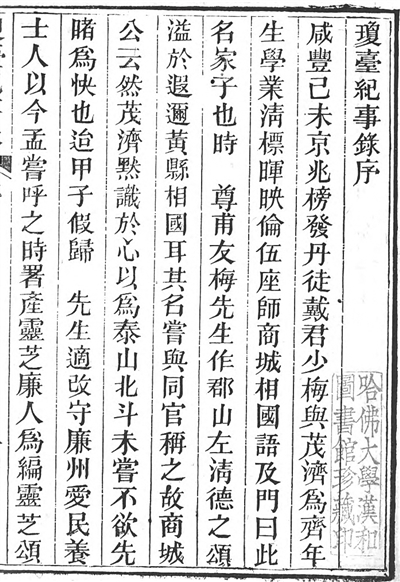 瓊臺紀事錄序
咸豐己未京兆榜發丹徒戴君少梅與茂濟為齊年
生學業淸標暉映倫伍座師商城相國語及門曰此
名家子也時　尊甫友梅先生作郡山左淸德之頌
溢於遐邇黃縣相國耳其名嘗與同官稱之故商城
公云然茂濟默識於心以為泰山北斗未嘗不欲先
睹為快也迨甲子假歸　先生適改守廉州愛民養
士人以今孟嘗呼之時署產靈芝廉人為編靈芝頌
哈佛大學漢和
圖書館珍藏印